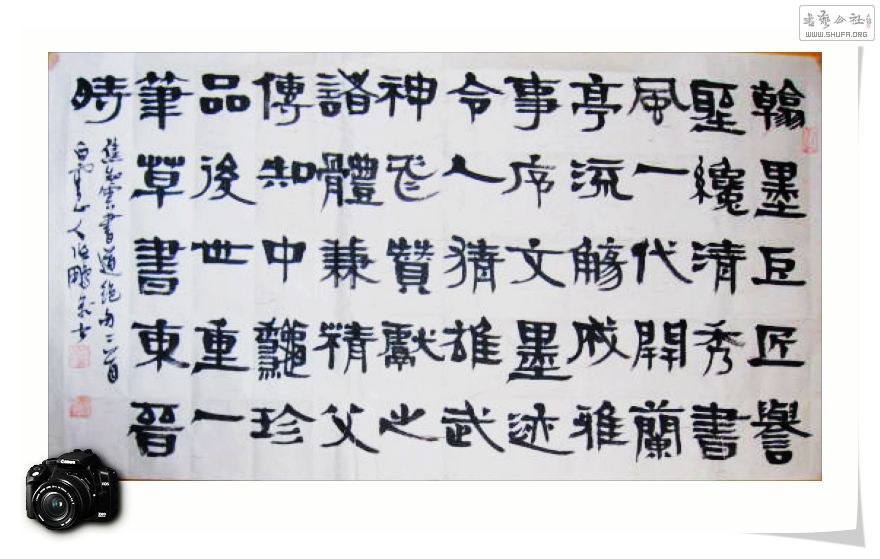 翰墨巨匠譽
聖纔清秀書
風一代開蘭
亭流觴成雅
事序文墨迹
令人猜雄武
神飛贊獻之
諸體兼精父
傳知中龝珍
品後世重一
筆草書東晉
時
焦知雲書道絕句二首
白雲山人
書藝公社
WWW.SHUFA.ORG
Canon
EOS